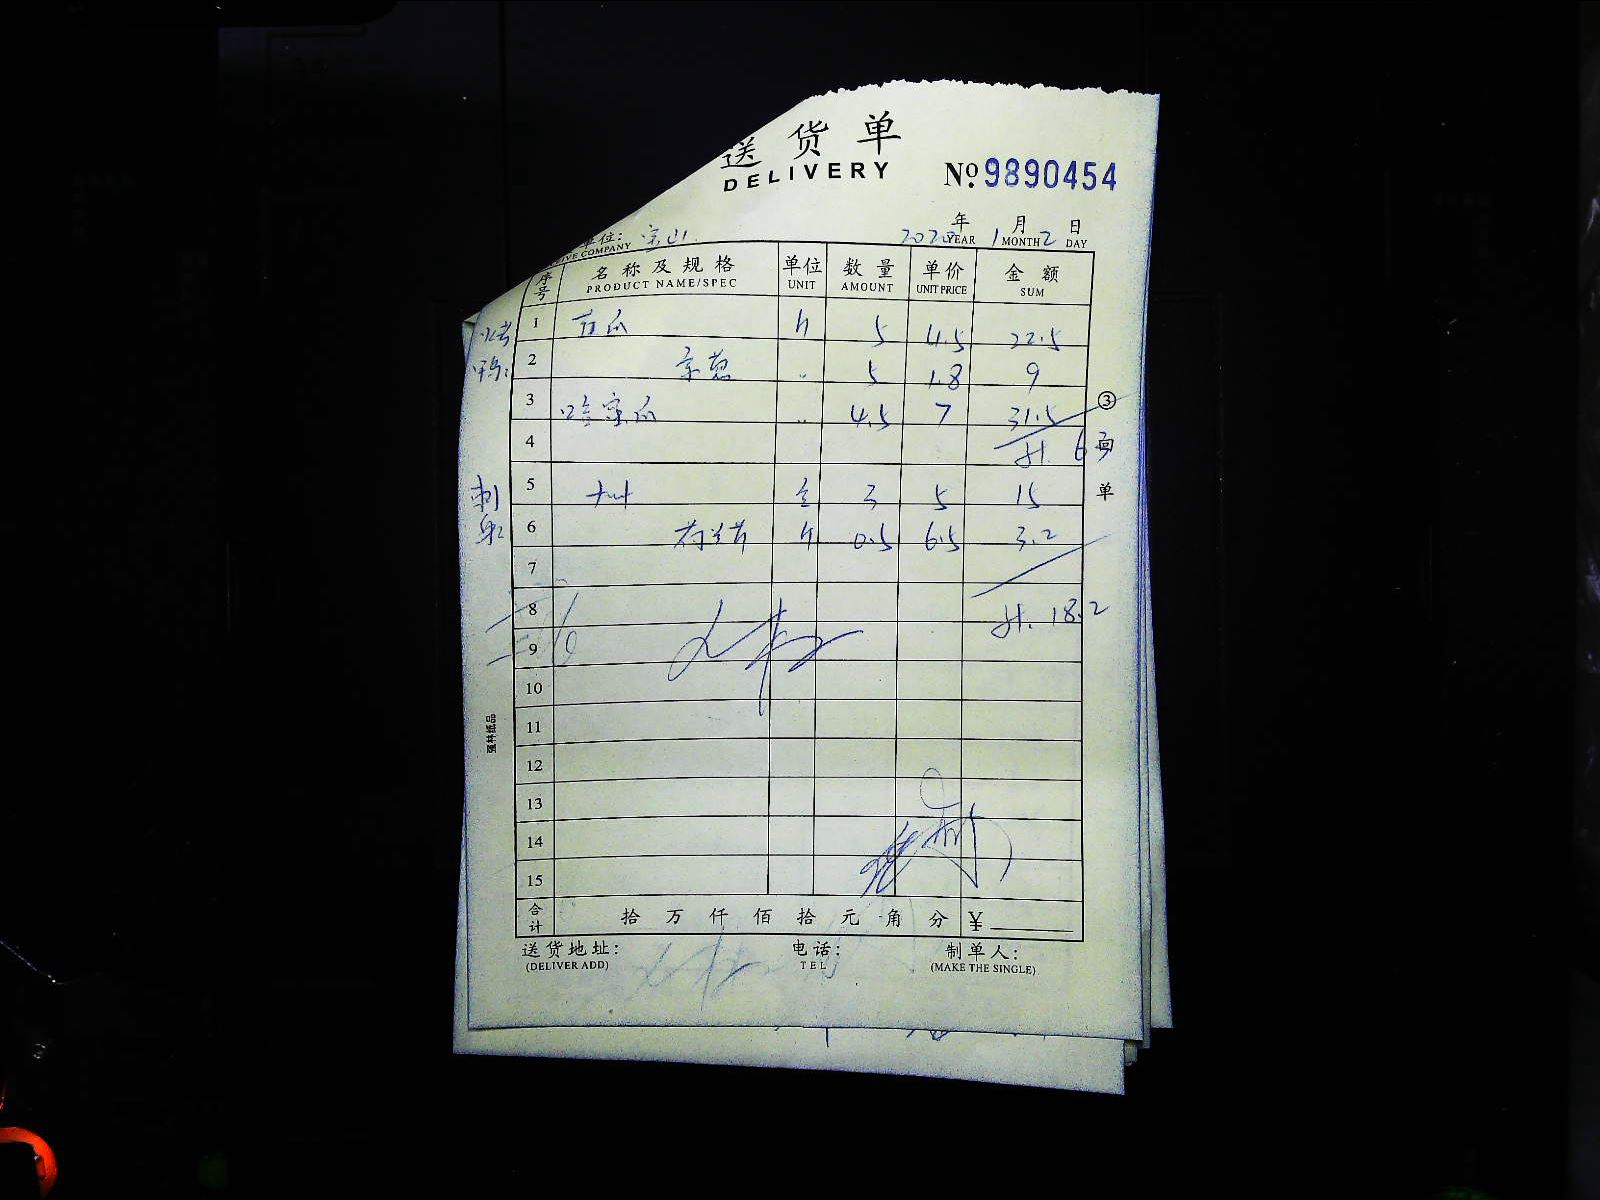 送货单
DELIVERY
No. 9890454
单位: 宝山
2020年 1月 2日
YEAR MONTH DAY
IVE COMPANY
序号 名称及规格 单位 数量 单价 金额
PRODUCT NAME/SPEC UNIT AMOUNT UNIT PRICE SUM
烤鸭:
1 5 4.5 22.5
2 京葱 〃 5 1.8 9
3 哈密瓜 〃 4.5 7 31.5
③
4 计. 63
回单
刺身:
5 3 5 15
6 0.5 6.5 3.2
7
8 计. 18.2
9
10
11
12
13
14
15
强林纸品
合计 拾 万 仟 佰 拾 元 角 分 ¥
送货地址: 电话: 制单人:
(DELIVER ADD) TEL (MAKE THE SINGLE)